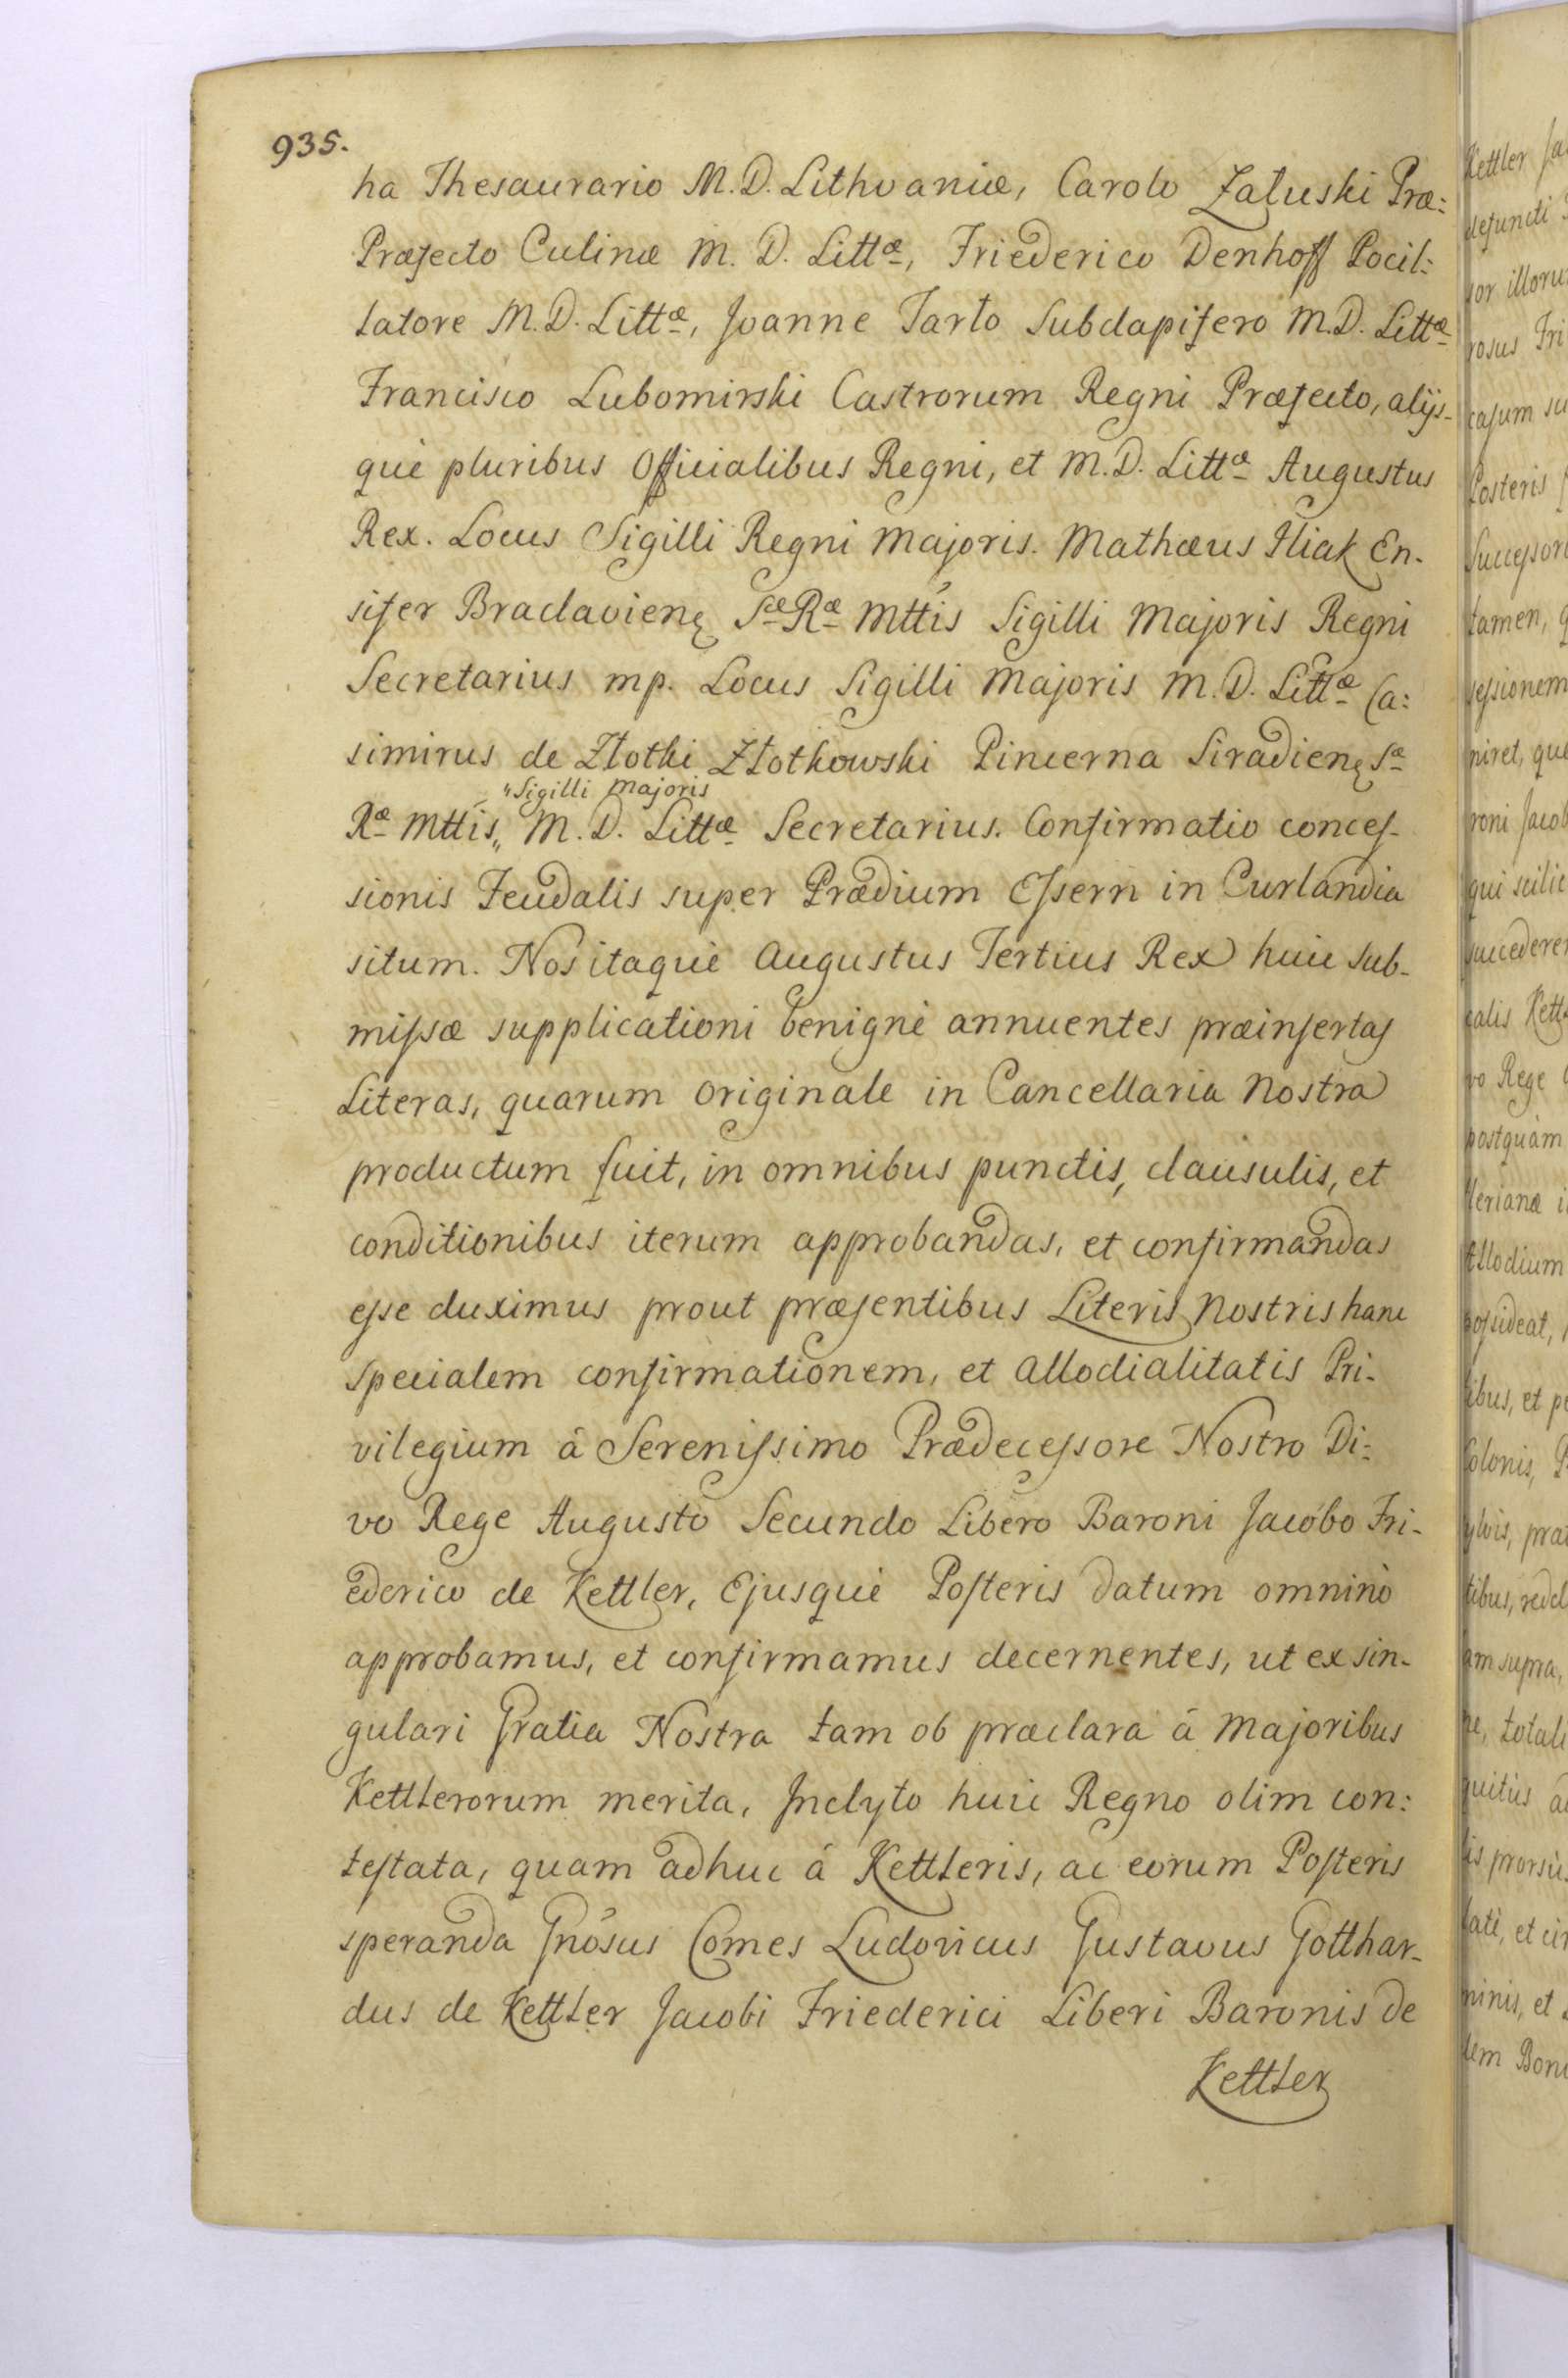 935.
ha Thesaurario M. D. Lithvaniæ, Carolo Załuski Præ:
Præfecto Culinæ M. D. Littæ, Friederico Denhoff Pocil:
latore M. D. Littæ, Joanne Tarło Subdapifero M. D. Littæ
Francisco Lubomirski Castrorum Regni Præfecto, alijs-
què pluribus Officialibus Regni, et M. D. Littæ Augustus
Rex. Locus Sigilli Regni Majoris. Mathæus Iliak En-
sifer Braclavienę Sæ Ræ Mttis Sigilli Majoris Regni
Secretarius mp. Locus Sigilli Majoris M. D. Littæ Ca:
simirus de Złotki Złotkowski Pincerna Siradienę Sæ
"Sigilli Majoris
Ræ Mttis,, M. D. Littæ Secretarius. Confirmatio concef-
sionis Feudalis super Prædium Efsern in Curlandia
situm. Nos itaquè Augustus Tertius Rex huic sub-
mifsæ supplicationi benignè annuentes præinsertas
Literas, quarum originale in Cancellaria Nostra
productum fuit, in omnibus punctis, clausulis, et
conditionibus iterum approbandas, et confirmandas
efse duximus prout præsentibus Literis Nostris hanc
specialem confirmationem, et Allodialitatis Pri-
vilegium â Serenifsimo Prædecefsore Nostro Di:
vo Rege Augusto Secundo Libero Baroni Jacobo Fri-
ederico de Kettler, Ejusquè Posteris datum omninò
approbamus, et confirmamus decernentes, ut ex sin-
gulari Gratia Nostra tam ob præclara â Majoribus
Kettlerorum merita, Inclyto huic Regno olim con:
testata, quam adhuc á Kettleris, ac eorum Posteris
speranda Gnósus Comes Ludovicus Gustavus Gotthar-
dus de Kettler Jacobi Friederici Liberi Baronis de
Kettler